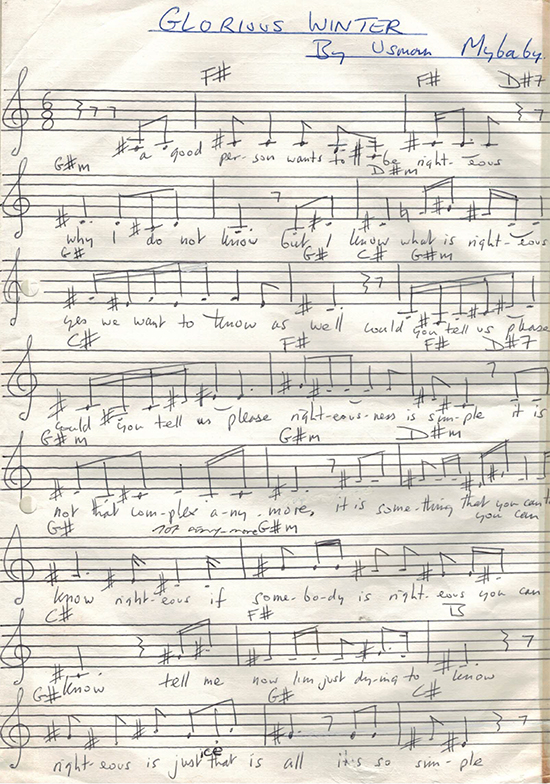 GLORIOUS WINTER
By Usman Mybaby
F# F# D#7
a good per-son wants to be right-eous
G#m D#m
why I do not know but I know what is right-eous
G# G# C# G#m
yes we want to know as well could you tell us please
C# F# F# D#7
could you tell us please right-eous-ness is sim-ple it is
G#m G#m D#m
not that com-plex a-ny-more, it is some-thing that you can't
you can
G# not any-more G#m
know right-eous if some-bo-dy is right-eous you can
C# F# B
know tell me now I'm just dy-ing to know
G# G# C#
right-eous is just that is all it's so sim-ple
ice